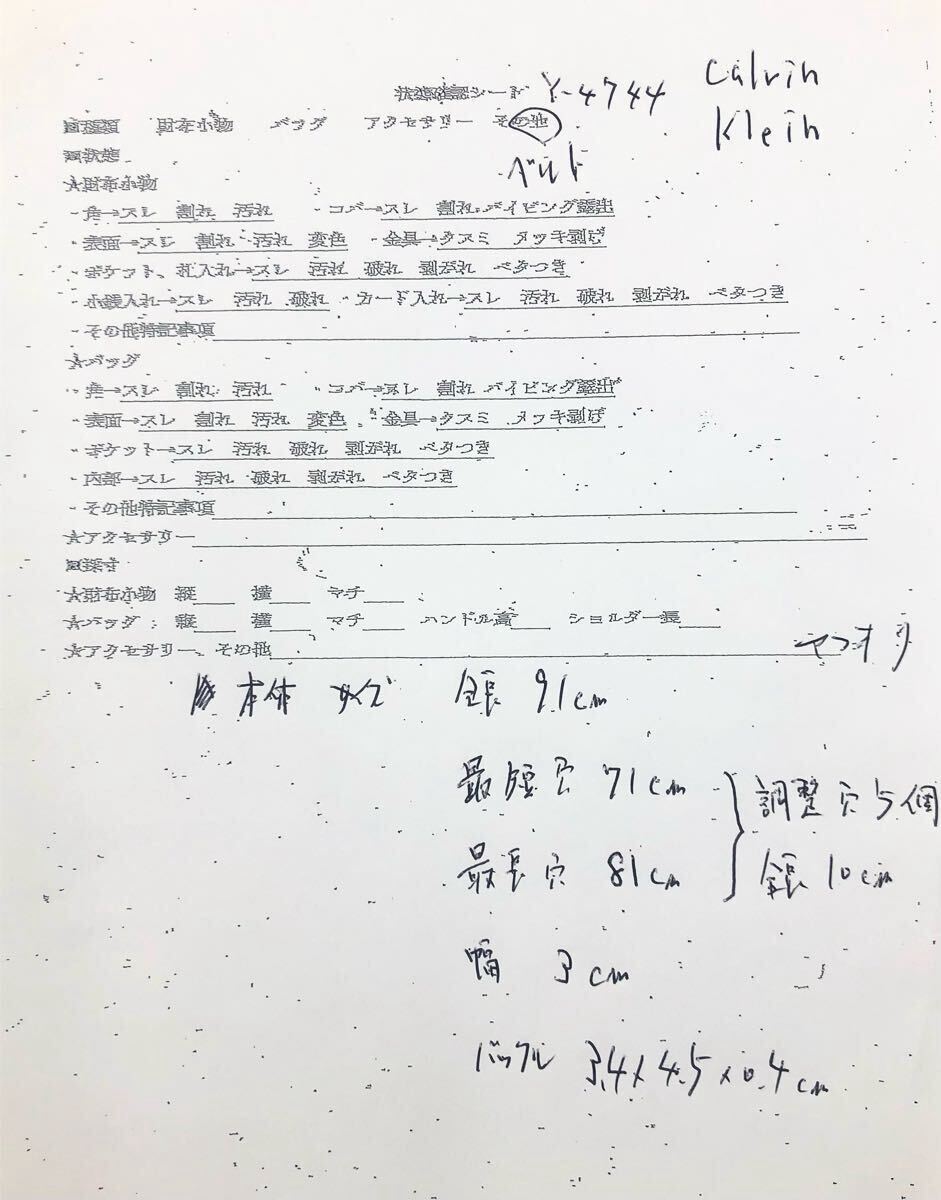 状態確認シート Y-4744 Calvin
Klein
■種類 財布小物 バッグ アクセサリー その他
ベルト
■状態
★財布小物
・角→スレ 割れ 汚れ ・コバ→スレ 割れ パイピング露出
・表面→スレ 割れ 汚れ 変色 ・金具→クスミ メッキ剥げ
・ポケット、札入れ→スレ 汚れ 破れ 剥がれ ベタつき
・小銭入れ→スレ 汚れ 破れ ・カード入れ→スレ 汚れ 破れ 剥がれ ベタつき
・その他特記事項
★バッグ
・角→スレ 割れ 汚れ ・コバ→スレ 割れ パイピング露出
・表面→スレ 割れ 汚れ 変色 ・金具→クスミ メッキ剥げ
・ポケット→スレ 汚れ 破れ 剥がれ ベタつき
・内部→スレ 汚れ 破れ 剥がれ ベタつき
・その他特記事項
★アクセサリー
■採寸
★財布小物 縦 横 マチ
★バッグ 縦 横 マチ ハンドル高 ショルダー長
★アクセサリー、その他
本体 サイズ 全長 91cm
最短穴 71cm
調整穴 5個
最長穴 81cm
全長 10cm
幅 3cm
バックル 3.4×4.5×0.4cm